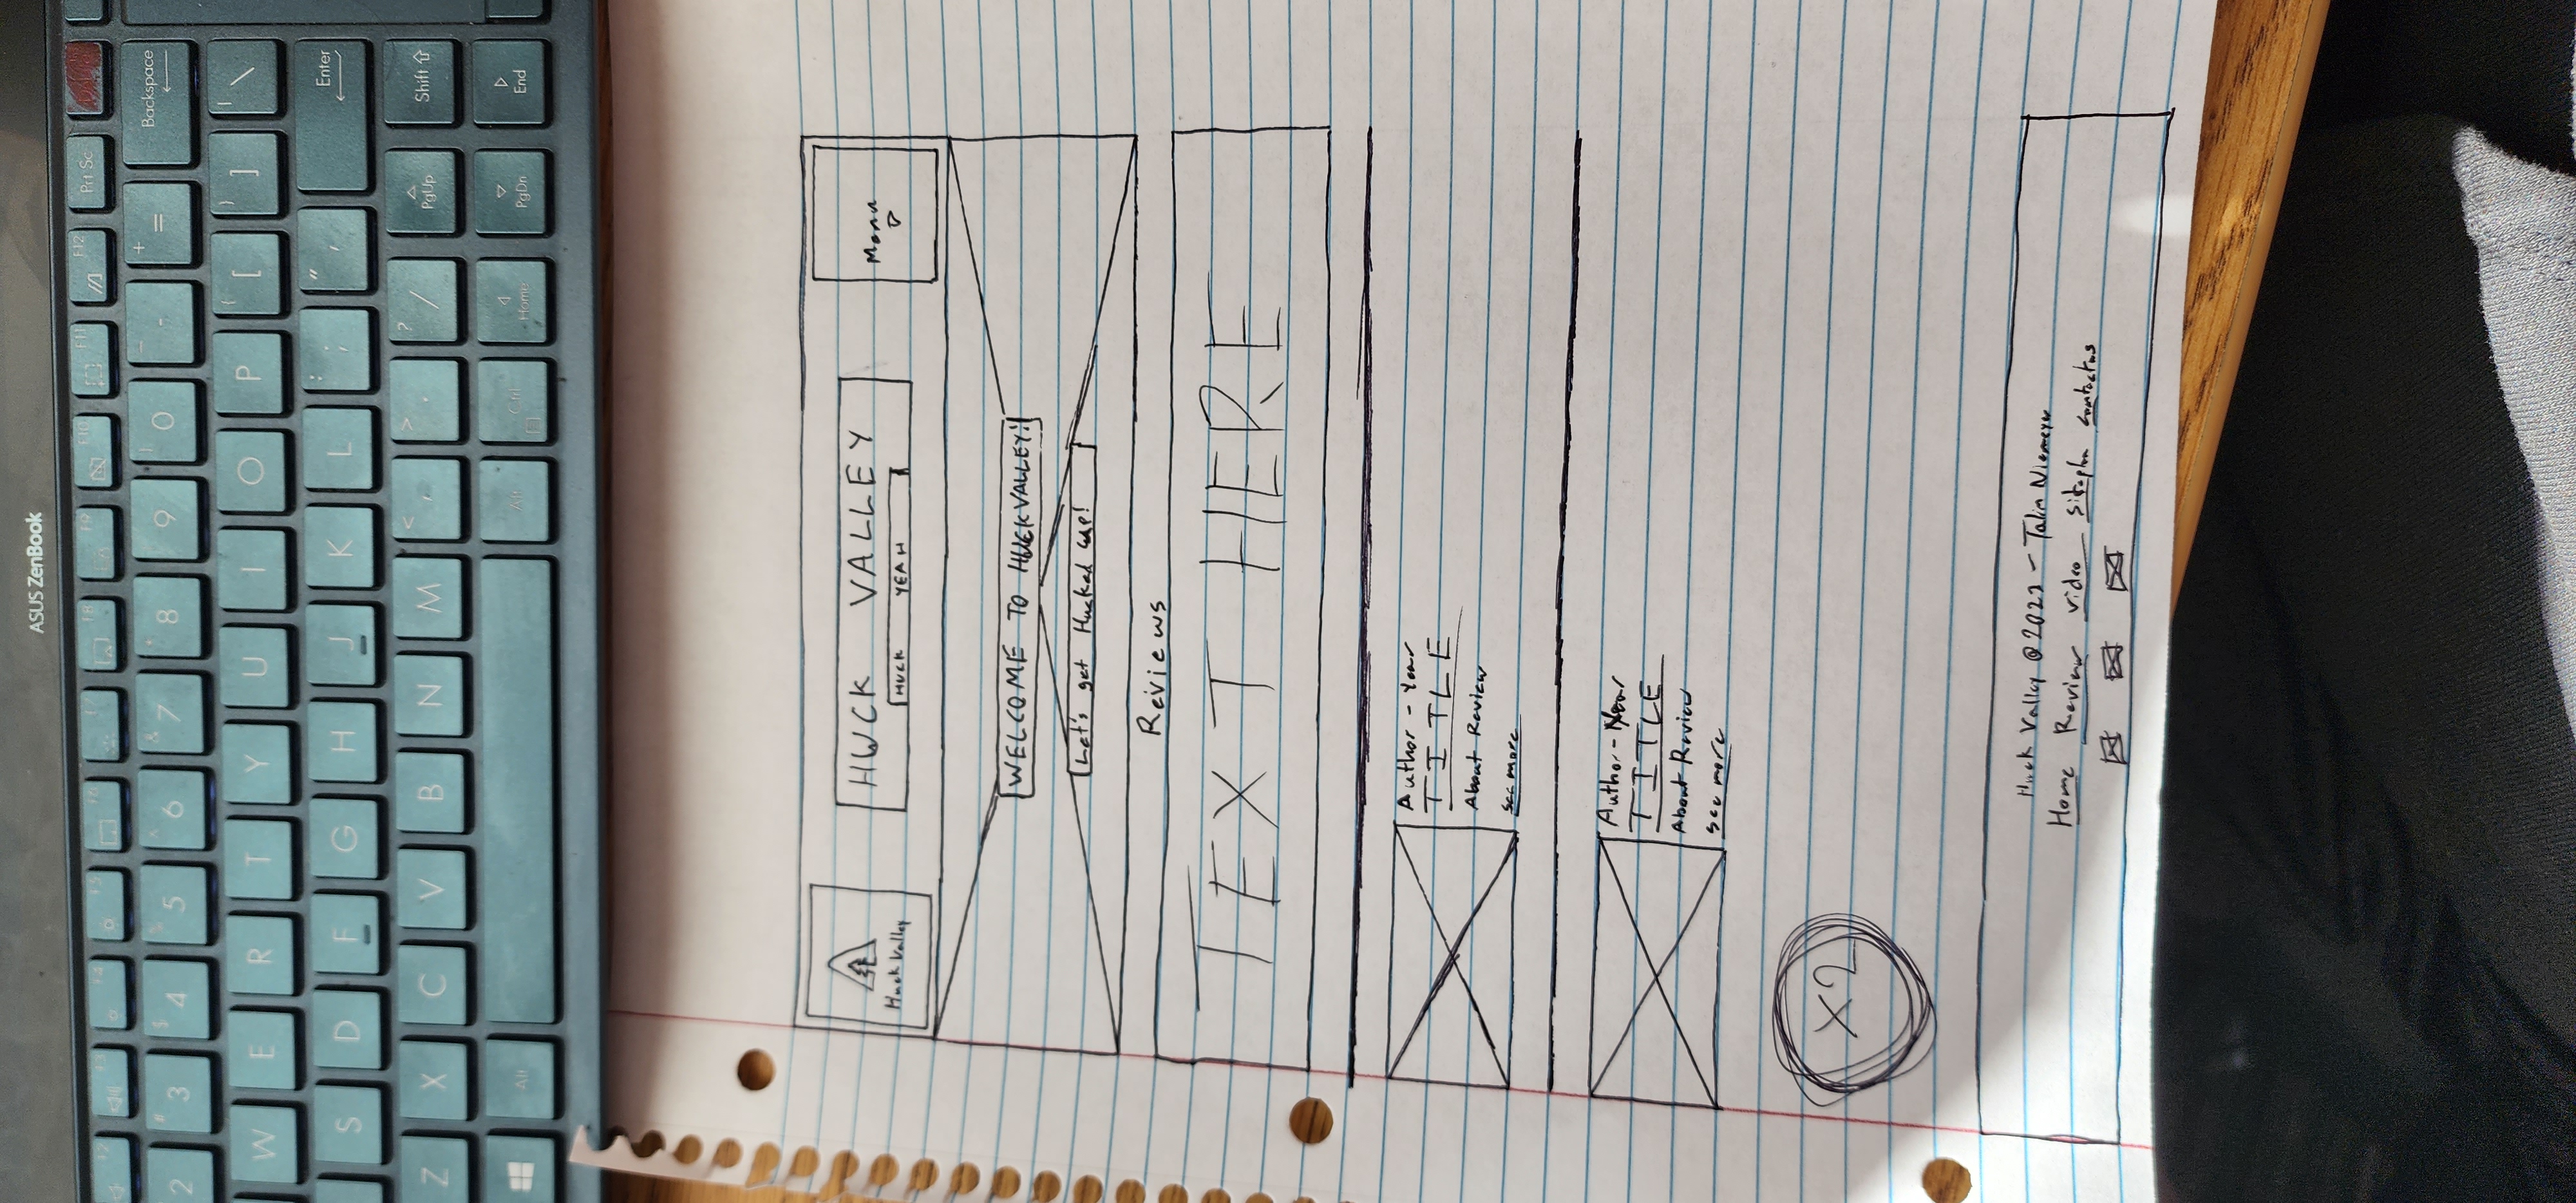 ASUS ZenBook
F2 F3 F4 F5 F6 F7 F8 F9 F10 F11 F12 Prt Sc
2 # 3 $ 4 % 5 ^ 6 & 7 * 8 9 ) 0 - + = Backspace
W E R T Y U I O P { [ } ] | \
S D F G H J K L : ; " ' Enter
Z X C V B N M < , > . ? / PgUp Shift
Alt Alt Ctrl Home PgDn End
HUCK VALLEY
Huck Valley
HUCK YEAH
Menu
WELCOME TO HUCKVALLEY!
Let's get Hucked up!
Reviews
TEXT HERE
Author - Year
TITLE
About Review
see more
Author - Year
TITLE
About Review
see more
X2
Huck Valley @2023 - Talin Niemeyer
Home Review video Siteplan contactus